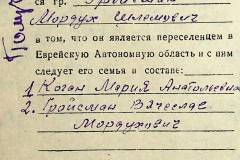 ся гр. Гройсман
Мордух Шлемович
в том, что он является переселенцем в
Еврейскую Автономную область и с ним
следует его семья в составе:
1 Коган Мария Анатольевна
2. Гройсман Вячеслав
Мордухович